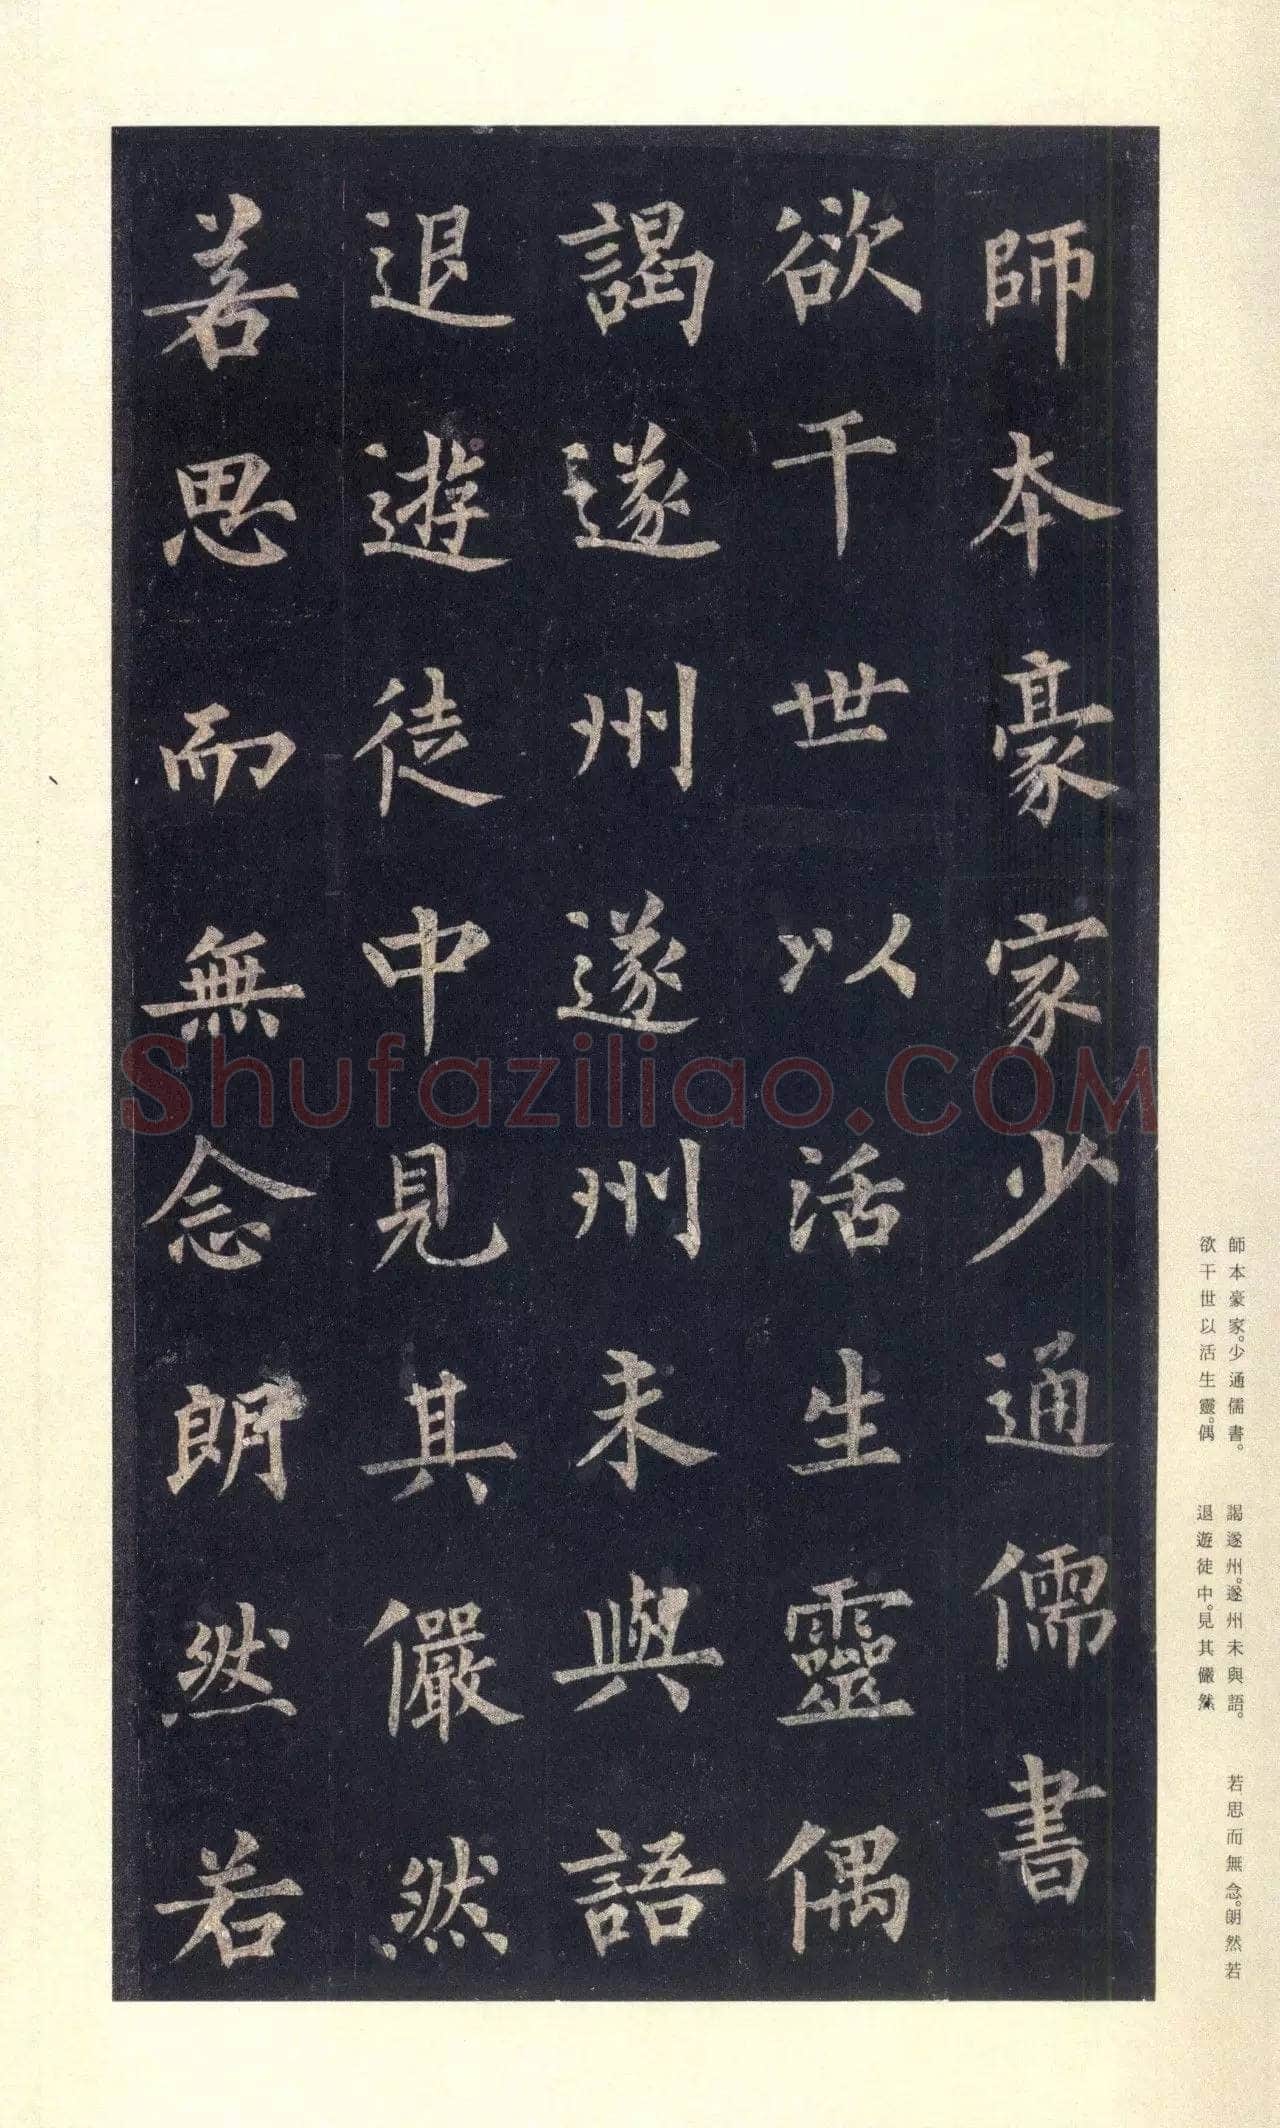 師本豪家少通儒書
欲干世以活生靈偶
謁遂州遂州未與語
退遊徒中見其儼然
若思而無念朗然若
Shufaziliao.COM
師本豪家。少通儒書。
欲干世以活生靈。偶
謁遂州。遂州未與語。
退遊徒中。見其儼然
若思而無念。朗然若